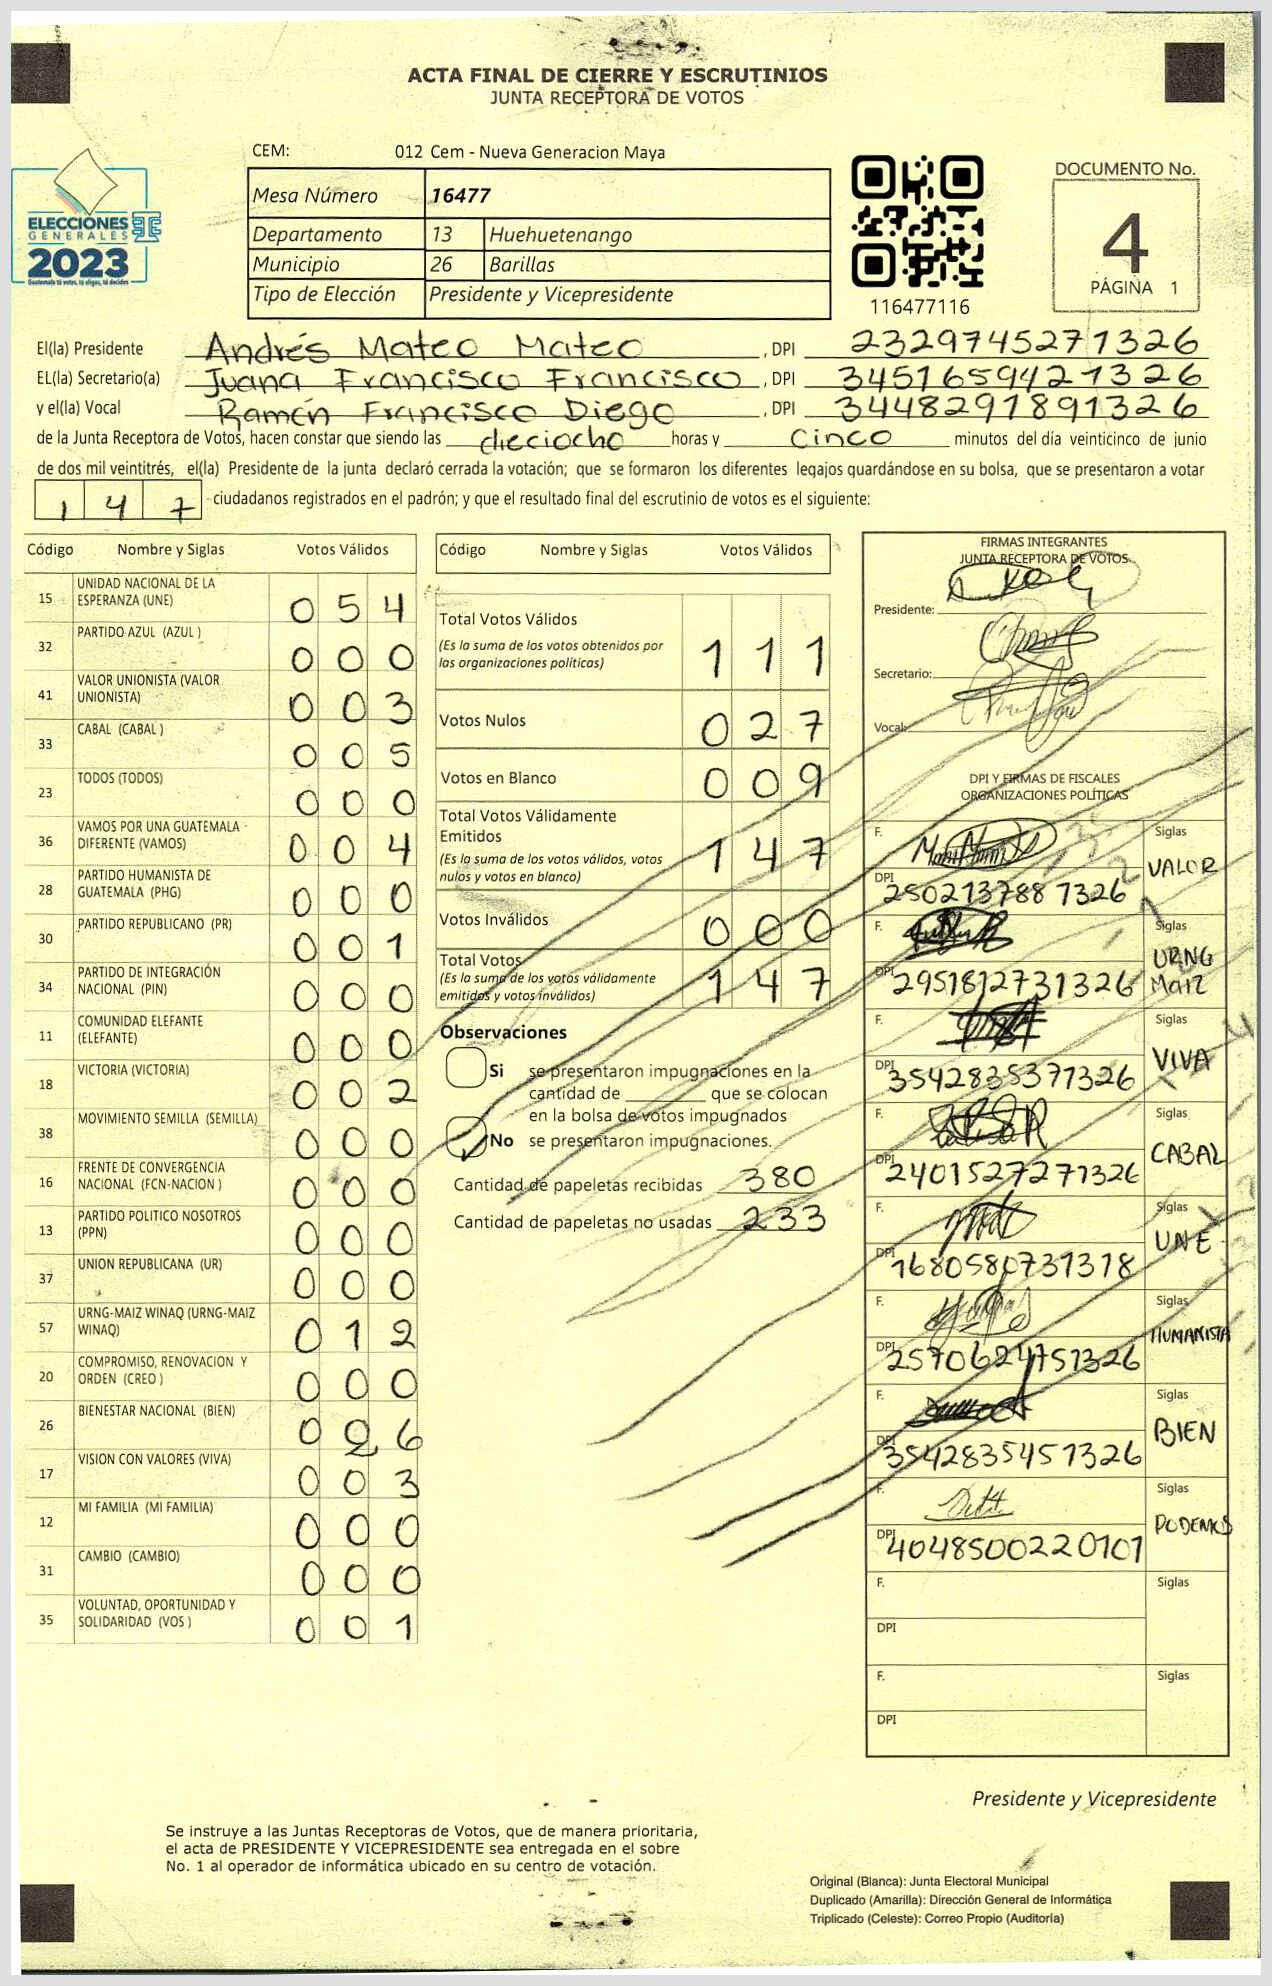 ACTA FINAL DE CIERRE Y ESCRUTINIOS
JUNTA RECEPTORA DE VOTOS
CEM: 012 Cem - Nueva Generacion Maya
Mesa Número 16477
Departamento 13 Huehuetenango
Municipio 26 Barillas
Tipo de Elección Presidente y Vicepresidente
ELECCIONES
GENERALES
2023
Guatemala tú votas, tú eliges, tú decides
116477116
DOCUMENTO No.
4
PÁGINA 1
El(la) Presidente Andrés Mateo Mateo , DPI 2329745271326
EL(la) Secretario(a) Juana Francisco Francisco , DPI 3451659421326
y el(la) Vocal Ramón Francisco Diego , DPI 3448291891326
de la Junta Receptora de Votos, hacen constar que siendo las dieciocho horas y cinco minutos del día veinticinco de junio
de dos mil veintitrés, el(la) Presidente de la junta declaró cerrada la votación; que se formaron los diferentes legajos quardándose en su bolsa, que se presentaron a votar
147 ciudadanos registrados en el padrón; y que el resultado final del escrutinio de votos es el siguiente:
Código Nombre y Siglas Votos Válidos
15 UNIDAD NACIONAL DE LA ESPERANZA (UNE) 054
32 PARTIDO AZUL (AZUL ) 000
41 VALOR UNIONISTA (VALOR UNIONISTA) 003
33 CABAL (CABAL ) 005
23 TODOS (TODOS) 000
36 VAMOS POR UNA GUATEMALA DIFERENTE (VAMOS) 004
28 PARTIDO HUMANISTA DE GUATEMALA (PHG) 000
30 PARTIDO REPUBLICANO (PR) 001
34 PARTIDO DE INTEGRACIÓN NACIONAL (PIN) 000
11 COMUNIDAD ELEFANTE (ELEFANTE) 000
18 VICTORIA (VICTORIA) 002
38 MOVIMIENTO SEMILLA (SEMILLA) 000
16 FRENTE DE CONVERGENCIA NACIONAL (FCN-NACION ) 000
13 PARTIDO POLITICO NOSOTROS (PPN) 000
37 UNION REPUBLICANA (UR) 000
57 URNG-MAIZ WINAQ (URNG-MAIZ WINAQ) 012
20 COMPROMISO, RENOVACION Y ORDEN (CREO ) 000
26 BIENESTAR NACIONAL (BIEN) 026
17 VISION CON VALORES (VIVA) 003
12 MI FAMILIA (MI FAMILIA) 000
31 CAMBIO (CAMBIO) 000
35 VOLUNTAD, OPORTUNIDAD Y SOLIDARIDAD (VOS ) 001
Código Nombre y Siglas Votos Válidos
Total Votos Válidos 111
(Es la suma de los votos obtenidos por
las organizaciones políticas)
Votos Nulos 027
Votos en Blanco 009
Total Votos Válidamente
Emitidos 147
(Es la suma de los votos válidos, votos
nulos y votos en blanco)
Votos Inválidos 000
Total Votos 147
(Es la suma de los votos válidamente
emitidos y votos inválidos)
Observaciones
Si se presentaron impugnaciones en la
cantidad de ________ que se colocan
en la bolsa de votos impugnados
No se presentaron impugnaciones.
Cantidad de papeletas recibidas 380
Cantidad de papeletas no usadas 233
FIRMAS INTEGRANTES
JUNTA RECEPTORA DE VOTOS
Presidente:
Secretario:
Vocal:
DPI Y FIRMAS DE FISCALES
ORGANIZACIONES POLÍTICAS
F. Siglas
DPI 2502137881326 VALOR
F. Siglas
DPI 2951812731326 URNG MAIZ
F. Siglas
DPI 3542835371326 VIVA
F. Siglas
DPI 2401527271326 CABAL
F. Siglas
DPI 1680580731318 UNE
F. Siglas
DPI 2570624751326 HUMANISTA
F. Siglas
DPI 3542835451326 BIEN
F. Siglas
DPI 4048500220101 PODEMOS
F. Siglas
DPI
F. Siglas
DPI
Presidente y Vicepresidente
Se instruye a las Juntas Receptoras de Votos, que de manera prioritaria,
el acta de PRESIDENTE Y VICEPRESIDENTE sea entregada en el sobre
No. 1 al operador de informática ubicado en su centro de votación.
Original (Blanca): Junta Electoral Municipal
Duplicado (Amarilla): Dirección General de Informática
Triplicado (Celeste): Correo Propio (Auditoría)